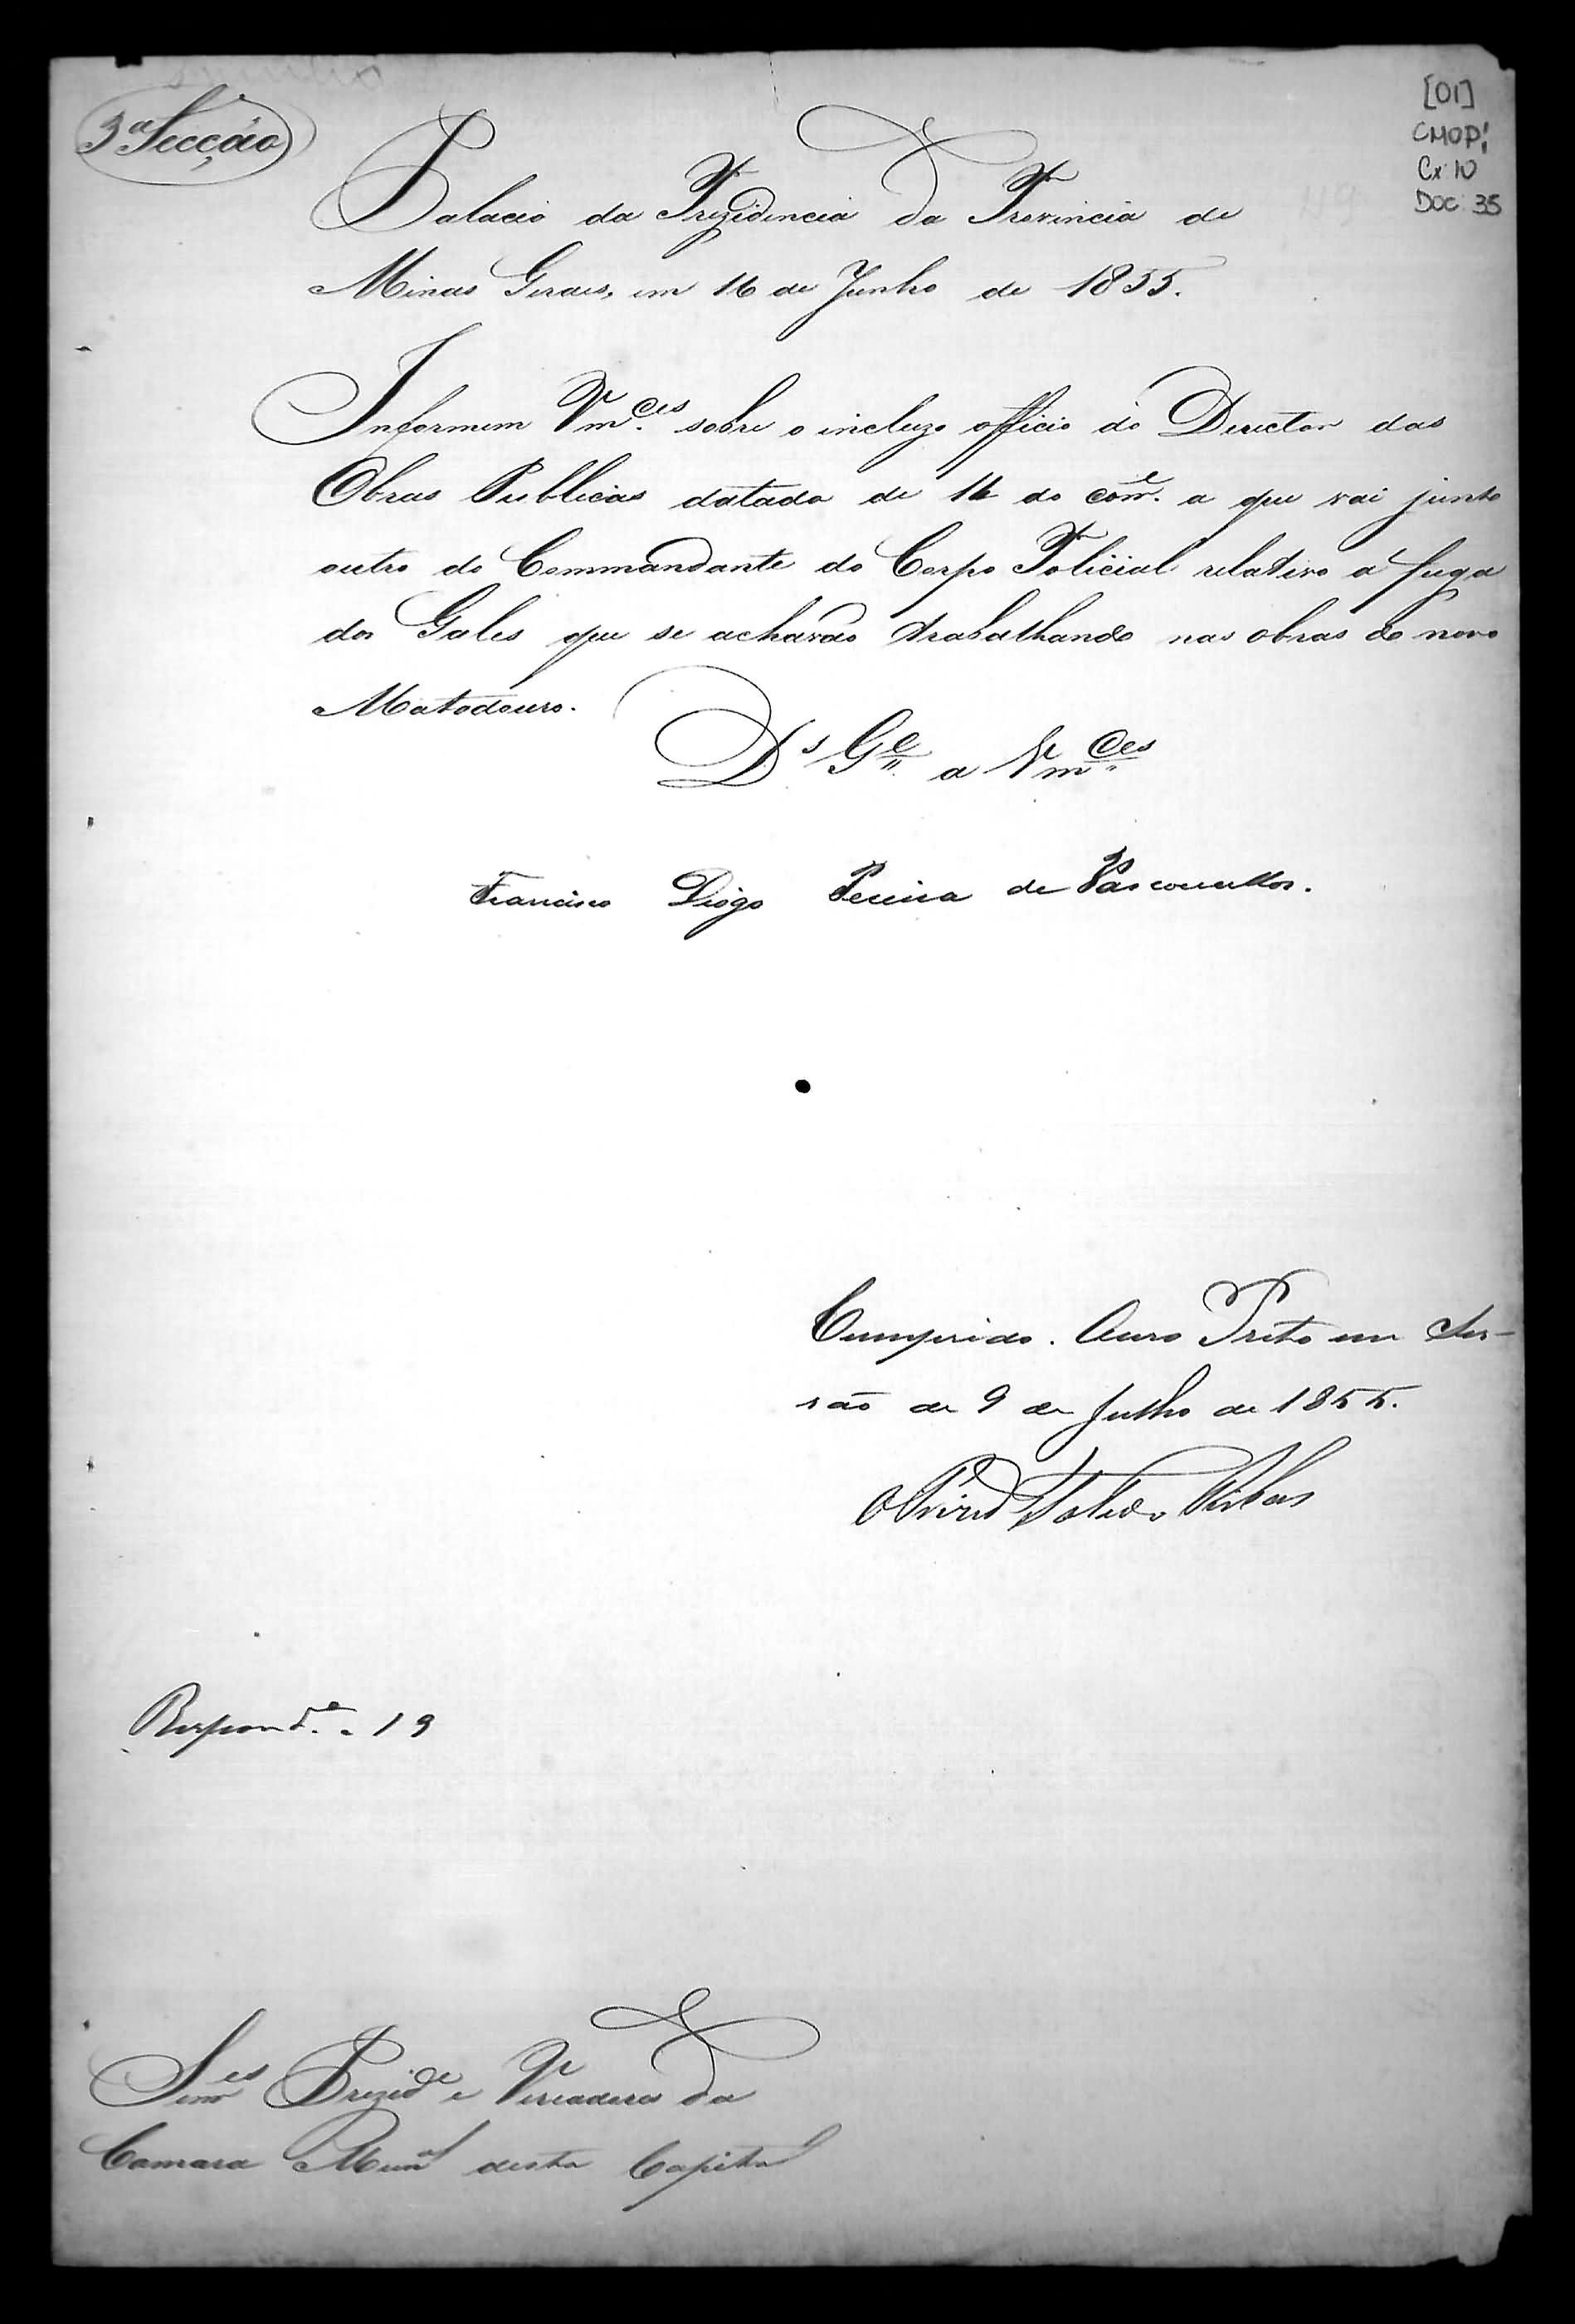 3ª Secção
[01]
CMOP
Cx: 10
DOC: 35
Palacio da Prezidencia da Provincia de
Minas Geraes, em 16 de Junho de 1855.
Informem Vm.ces sobre o incluzo officio do Director das
Obras Publicas datado de 14 do corr.e a que vai junto
outro do Commandante do Corpo Policial relativo a fuga
dos Galés que se achavão trabalhando nas obras do novo
Matadouro.
D.s G.e a Vm.ces
Francisco Diogo Pereira de Vasconcellos.
Cumprido. Ouro Preto em Ses-
são de 9 de Julho de 1855.
Toledo Ribas
Respond.e - 19
Snres Prezid.e e Vereadores da
Camara Mun.al desta Capital